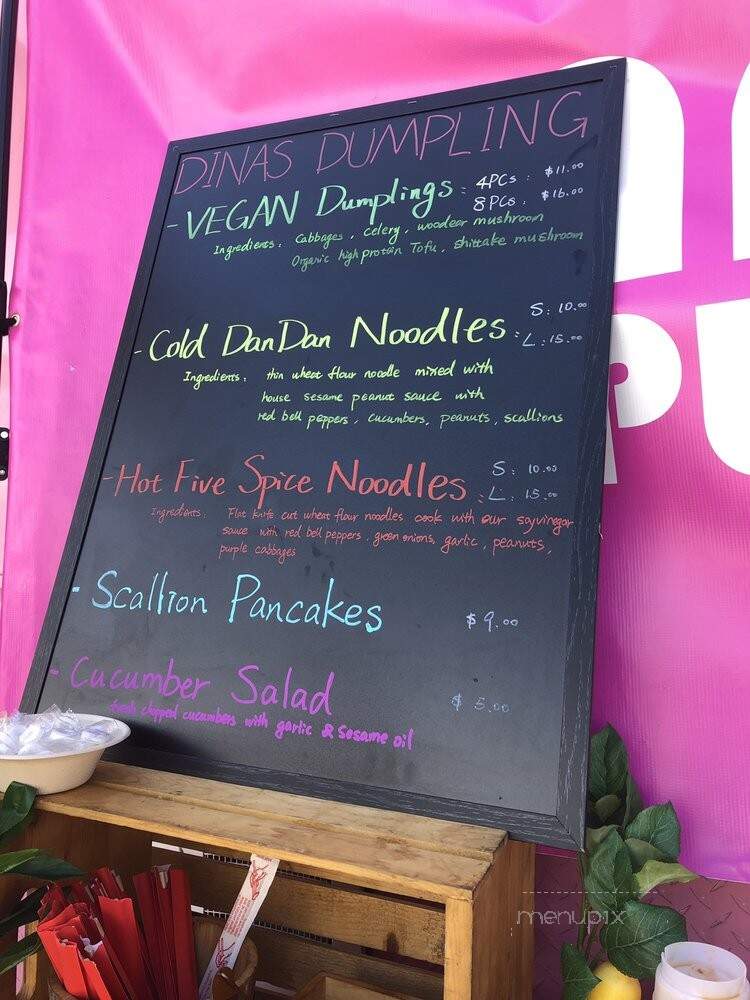 DINAS DUMPLING
- VEGAN Dumplings : 4PCs : $11.00
8PCs : $16.00
Ingredients : Cabbages, celery, woodear mushroom
Organic high protein Tofu, shittake mushroom
- Cold DanDan Noodles : S: 10.00
L: 15.00
Ingredients : thin wheat flour noodle mixed with
house sesame peanut sauce with
red bell peppers, cucumbers, peanuts, scallions
- Hot Five Spice Noodles : S: 10.00
L: 15.00
Ingredients: Flat knife cut wheat flour noodles cook with our soyvinegar
sauce with red bell peppers, green onions, garlic, peanuts,
purple cabbages
- Scallion Pancakes $9.00
- Cucumber Salad $5.00
fresh chopped cucumbers with garlic & Sesame oil
menupix